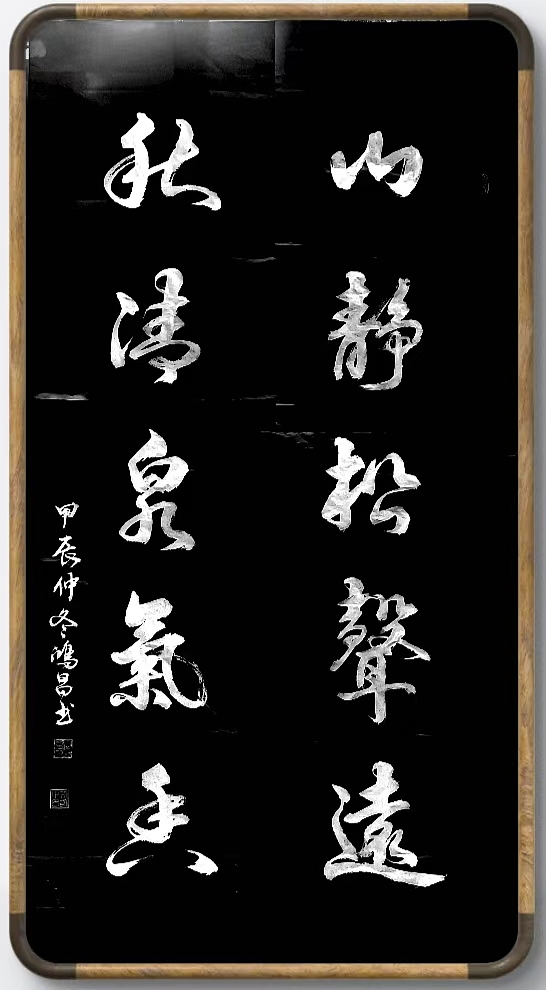 山靜松聲遠
秋清泉氣香
甲辰仲冬鴻昌书